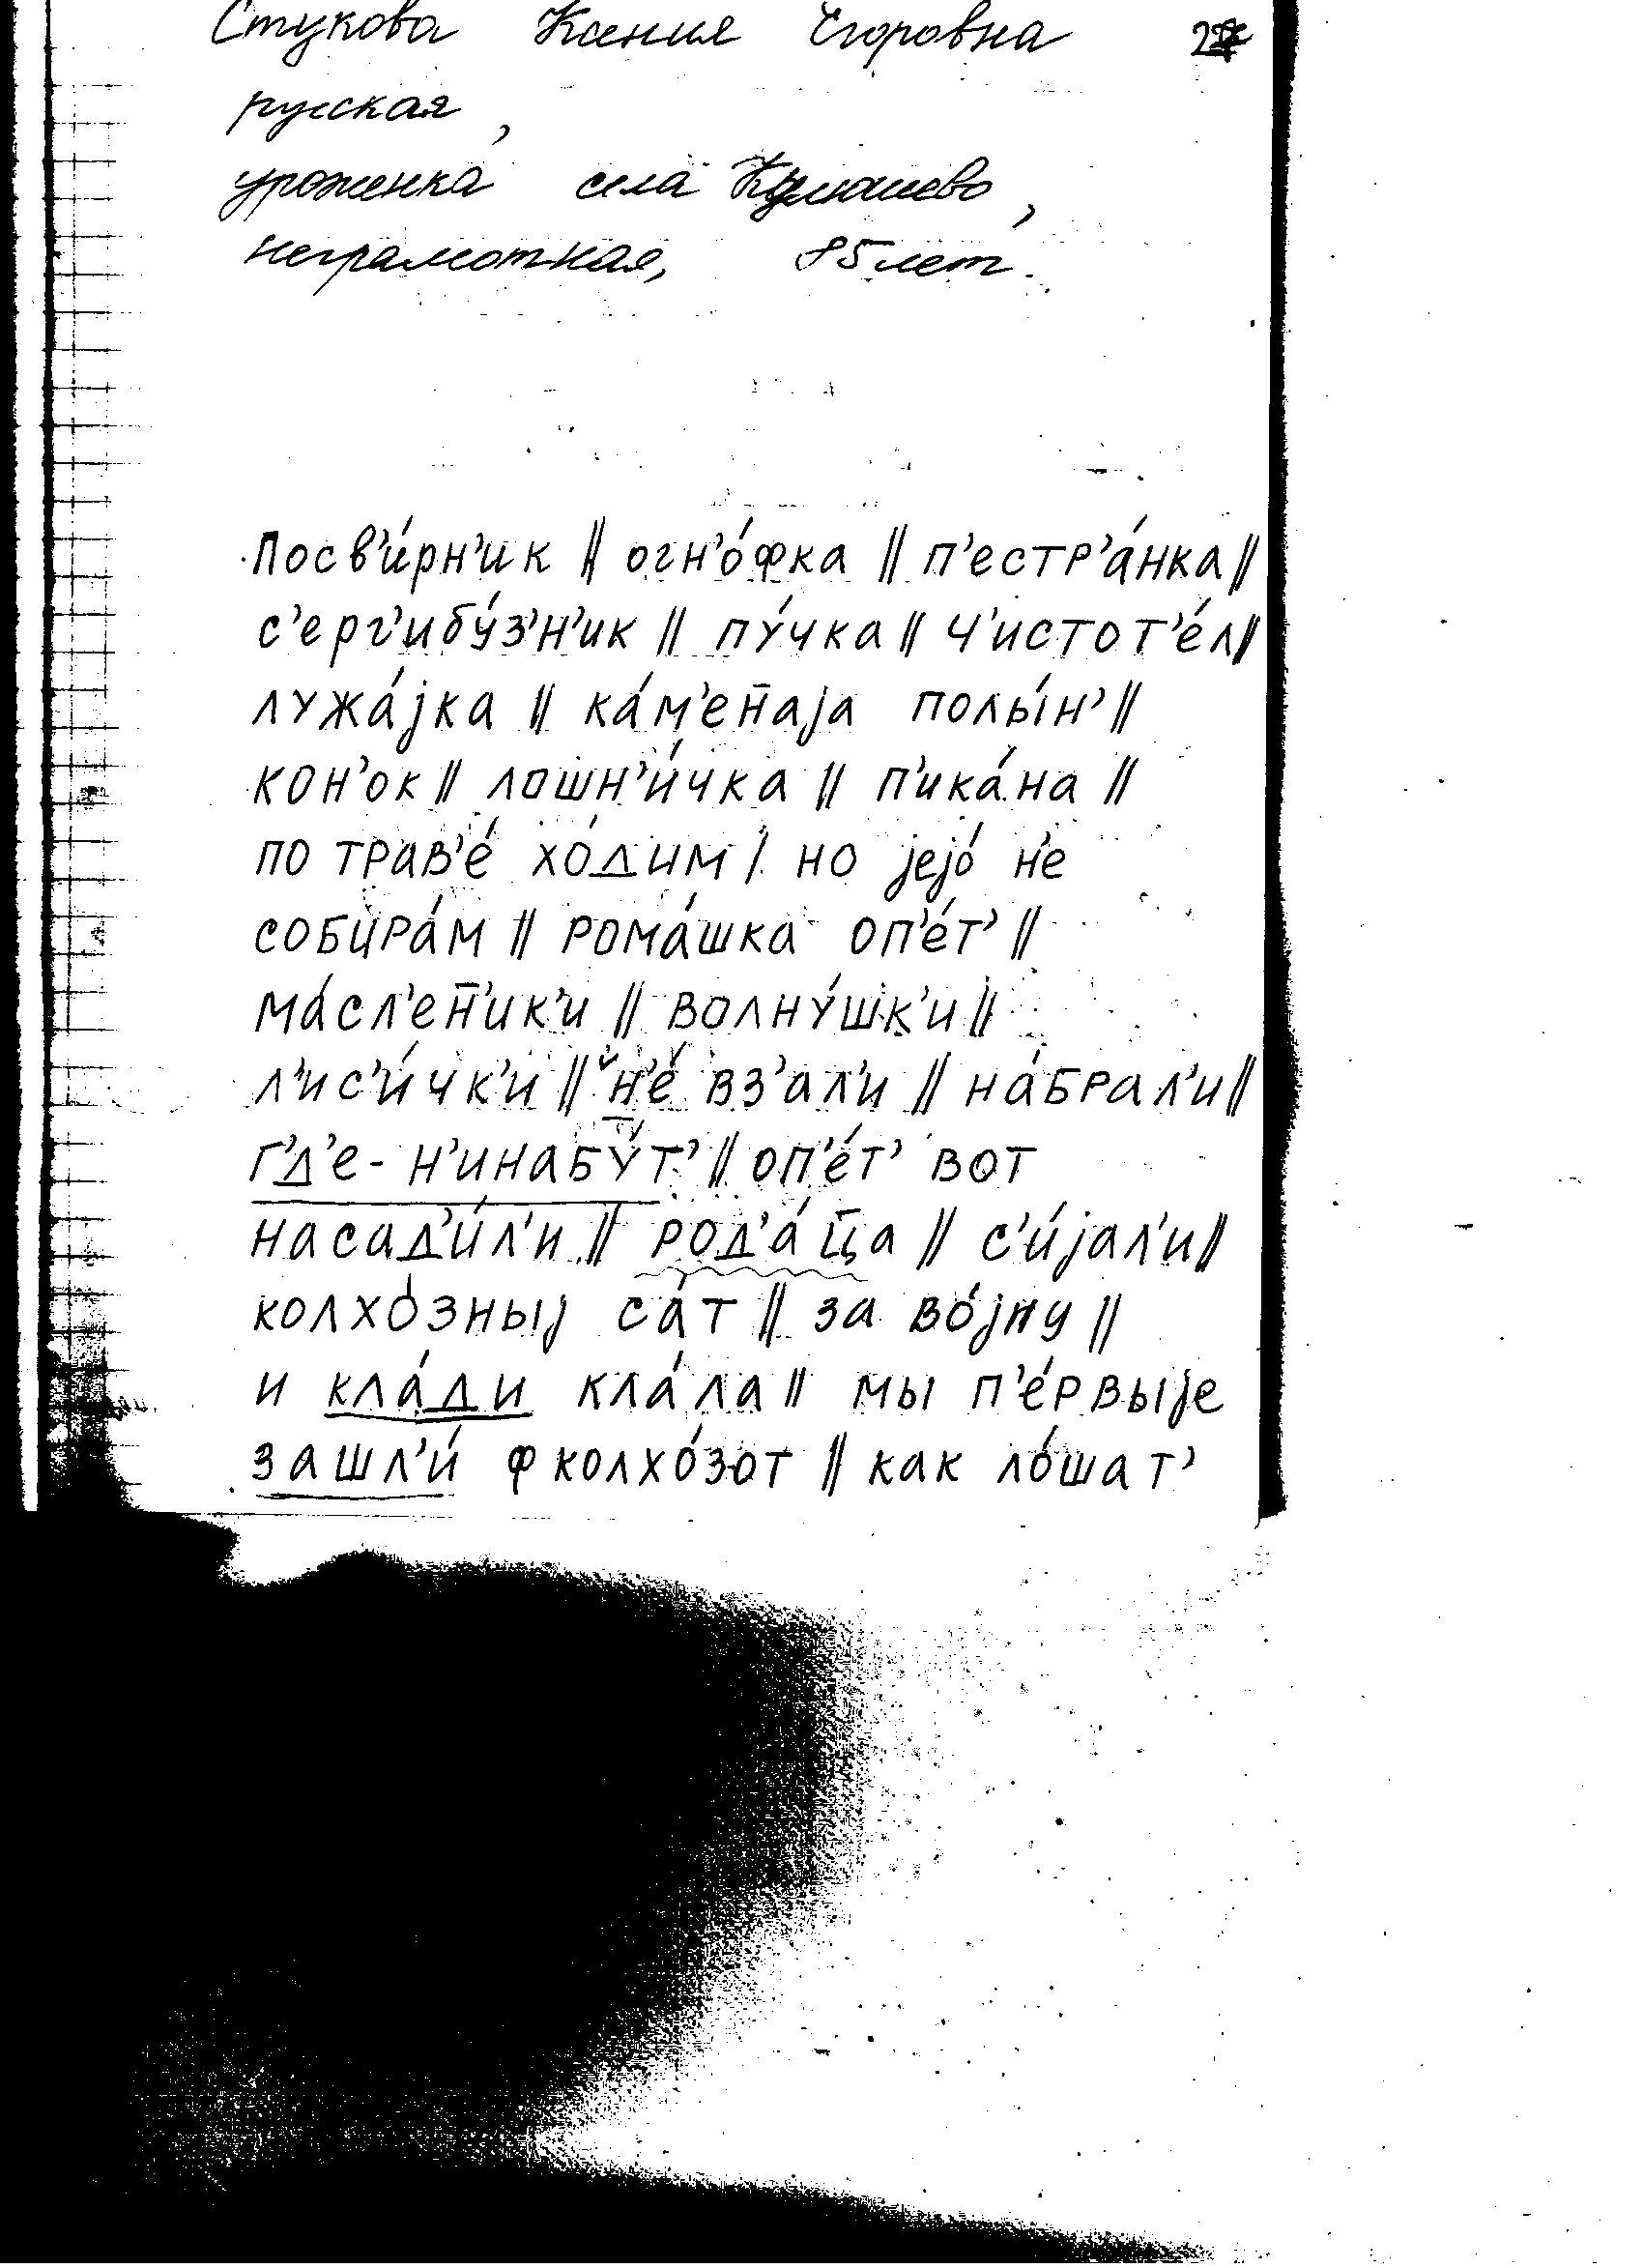 Стукова Ксения Егоровна
русская,
уроженка села
неграмотная, 85 лет.
Посв'и́рн'ик || огн'о́фка || п'естр'а́нка ||
с'ерг'ибу́з'н'ик || пу́чка || ч'истот'е́л ||
лужа́jка || ка́м'ен̄аjа полы́н' ||
кон'ок || лошн'и́чка || п'ика́на ||
по трав'е́ хо́дим / но jejо́ н'е
собира́м || рома́шка оп'е́т' ||
ма́сл'ен̄'ик'и || волну́шк'и ||
л'ис'и́чк'и || н'е́ вз'ал'и || на́брал'и ||
г'д'е - н'инабу́т' || оп'е́т' вот
насад'и́л'и || род'а́ц̄а || с'и́jал'и ||
колхо́зныj са́т || за во́jну ||
и кла́ди кла́ла || мы п'е́рвыjе
зашл'и́ ф колхо́зот || как ло́шат'